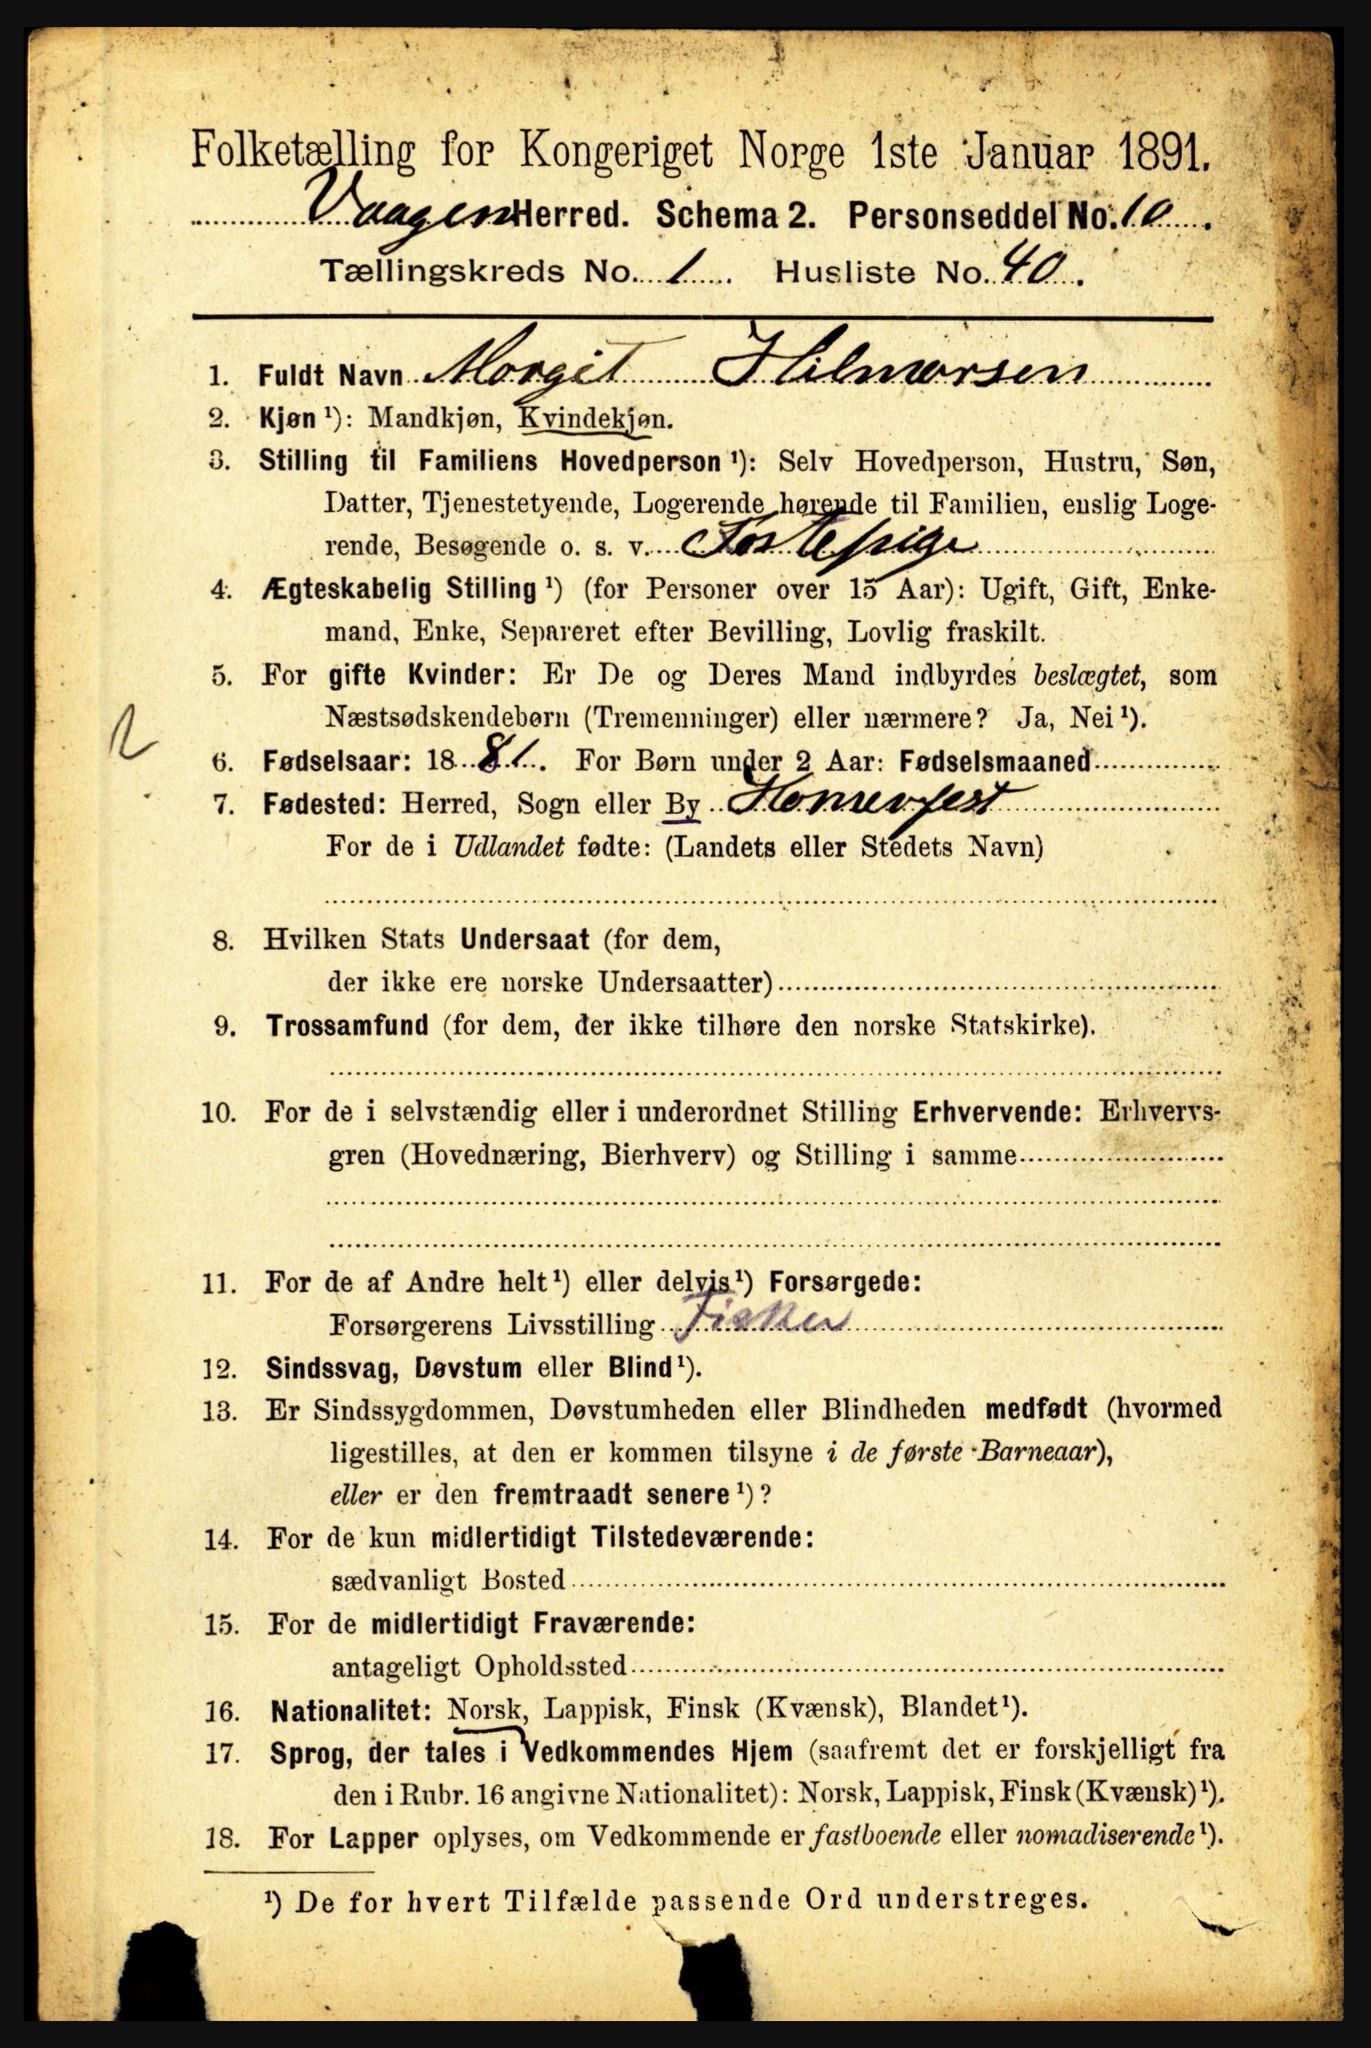 Folketælling for Kongeriget Norge 1ste Januar 1891.
Vaagen Herred. Schema 2. Personseddel No. 10.
Tællingskreds No. 1. Husliste No. 40.
1. Fuldt Navn Margit Hilmarsen
2. Kjøn ¹): Mandkjøn, Kvindekjøn.
3. Stilling til Familiens Hovedperson ¹): Selv Hovedperson, Hustru, Søn,
Datter, Tjenestetyende, Logerende hørende til Familien, enslig Loge-
rende, Besøgende o. s. v. Fostepige
4. Ægteskabelig Stilling ¹) (for Personer over 15 Aar): Ugift, Gift, Enke-
mand, Enke, Separeret efter Bevilling, Lovlig fraskilt.
5. For gifte Kvinder: Er De og Deres Mand indbyrdes beslægtet, som
Næstsødskendebørn (Tremenninger) eller nærmere? Ja, Nei ¹).
2
6. Fødselsaar: 1881. For Børn under 2 Aar: Fødselsmaaned
7. Fødested: Herred, Sogn eller By Hamerfest
For de i Udlandet fødte: (Landets eller Stedets Navn)
8. Hvilken Stats Undersaat (for dem,
der ikke ere norske Undersaatter)
9. Trossamfund (for dem, der ikke tilhøre den norske Statskirke).
10. For de i selvstændig eller i underordnet Stilling Erhvervende: Erhvervs-
gren (Hovednæring, Bierhverv) og Stilling i samme
11. For de af Andre helt ¹) eller delvis ¹) Forsørgede:
Forsørgerens Livsstilling Fisker
12. Sindssvag, Døvstum eller Blind ¹).
13. Er Sindssygdommen, Døvstumheden eller Blindheden medfødt (hvormed
ligestilles, at den er kommen tilsyne i de første Barneaar),
eller er den fremtraadt senere ¹)?
14. For de kun midlertidigt Tilstedeværende:
sædvanligt Bosted
15. For de midlertidigt Fraværende:
antageligt Opholdssted
16. Nationalitet: Norsk, Lappisk, Finsk (Kvænsk), Blandet ¹).
17. Sprog, der tales i Vedkommendes Hjem (saafremt det er forskjelligt fra
den i Rubr. 16 angivne Nationalitet): Norsk, Lappisk, Finsk (Kvænsk) ¹).
18. For Lapper oplyses, om Vedkommende er fastboende eller nomadiserende ¹).
¹) De for hvert Tilfælde passende Ord understreges.